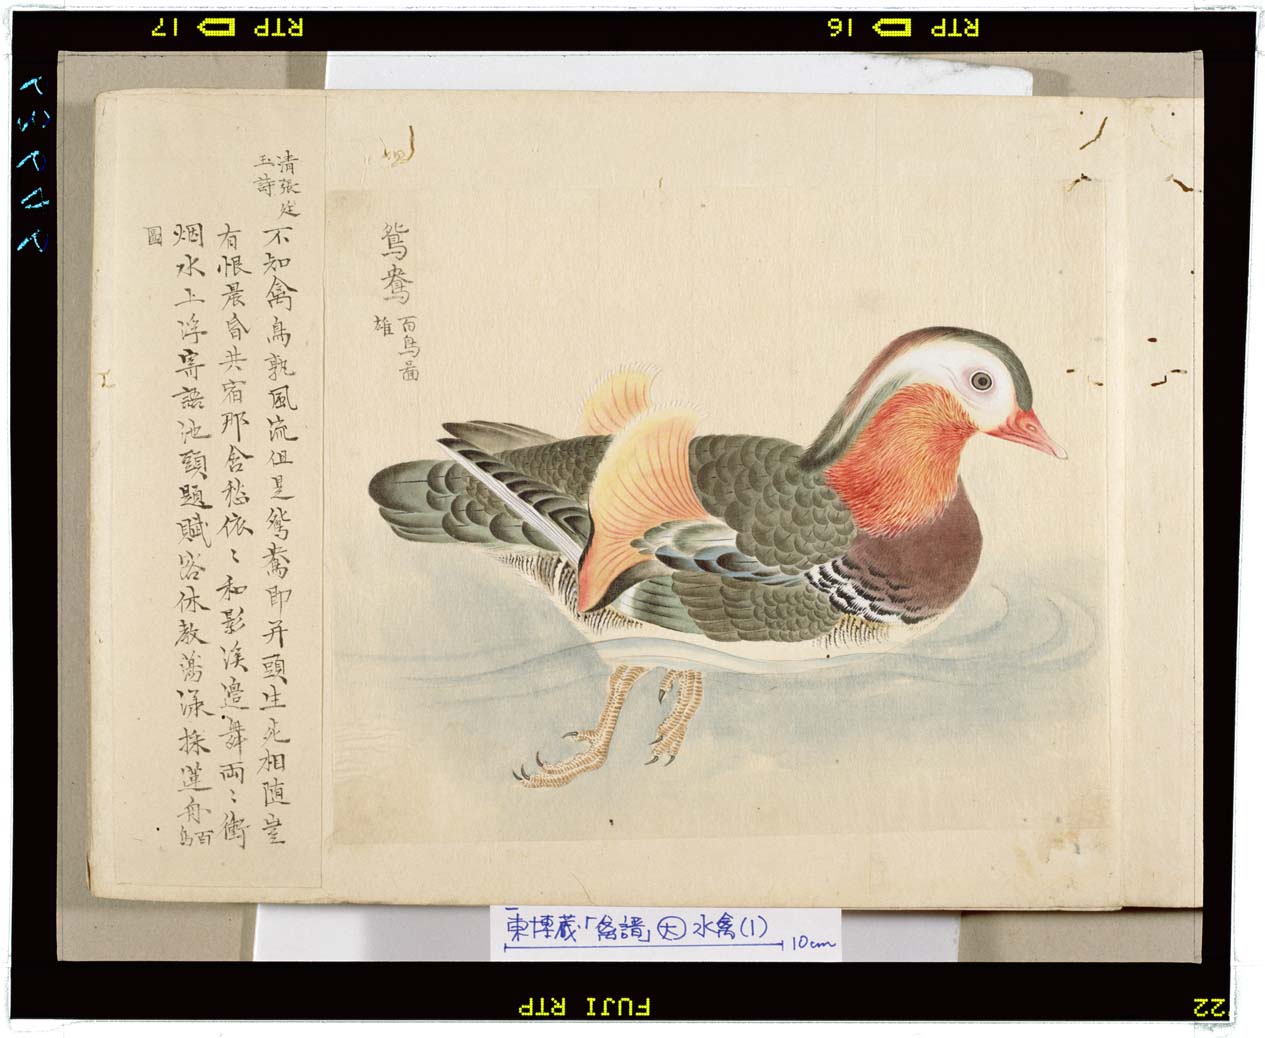 鴛鴦
百鳥圖
雄
清張廷
玉詩
不知禽鳥孰風流但是鴛鴦即并頭生死相随豈
有恨晨昏共宿那含愁依〻和影渓邉舞両〻衝
烟水上浮寄語池頭題賦客休教蕩漾採蓮舟百鳥
圖
東博蔵「禽譜」大 水禽(1)
10cm
RTP 17
RTP 16
FUJI RTP
22